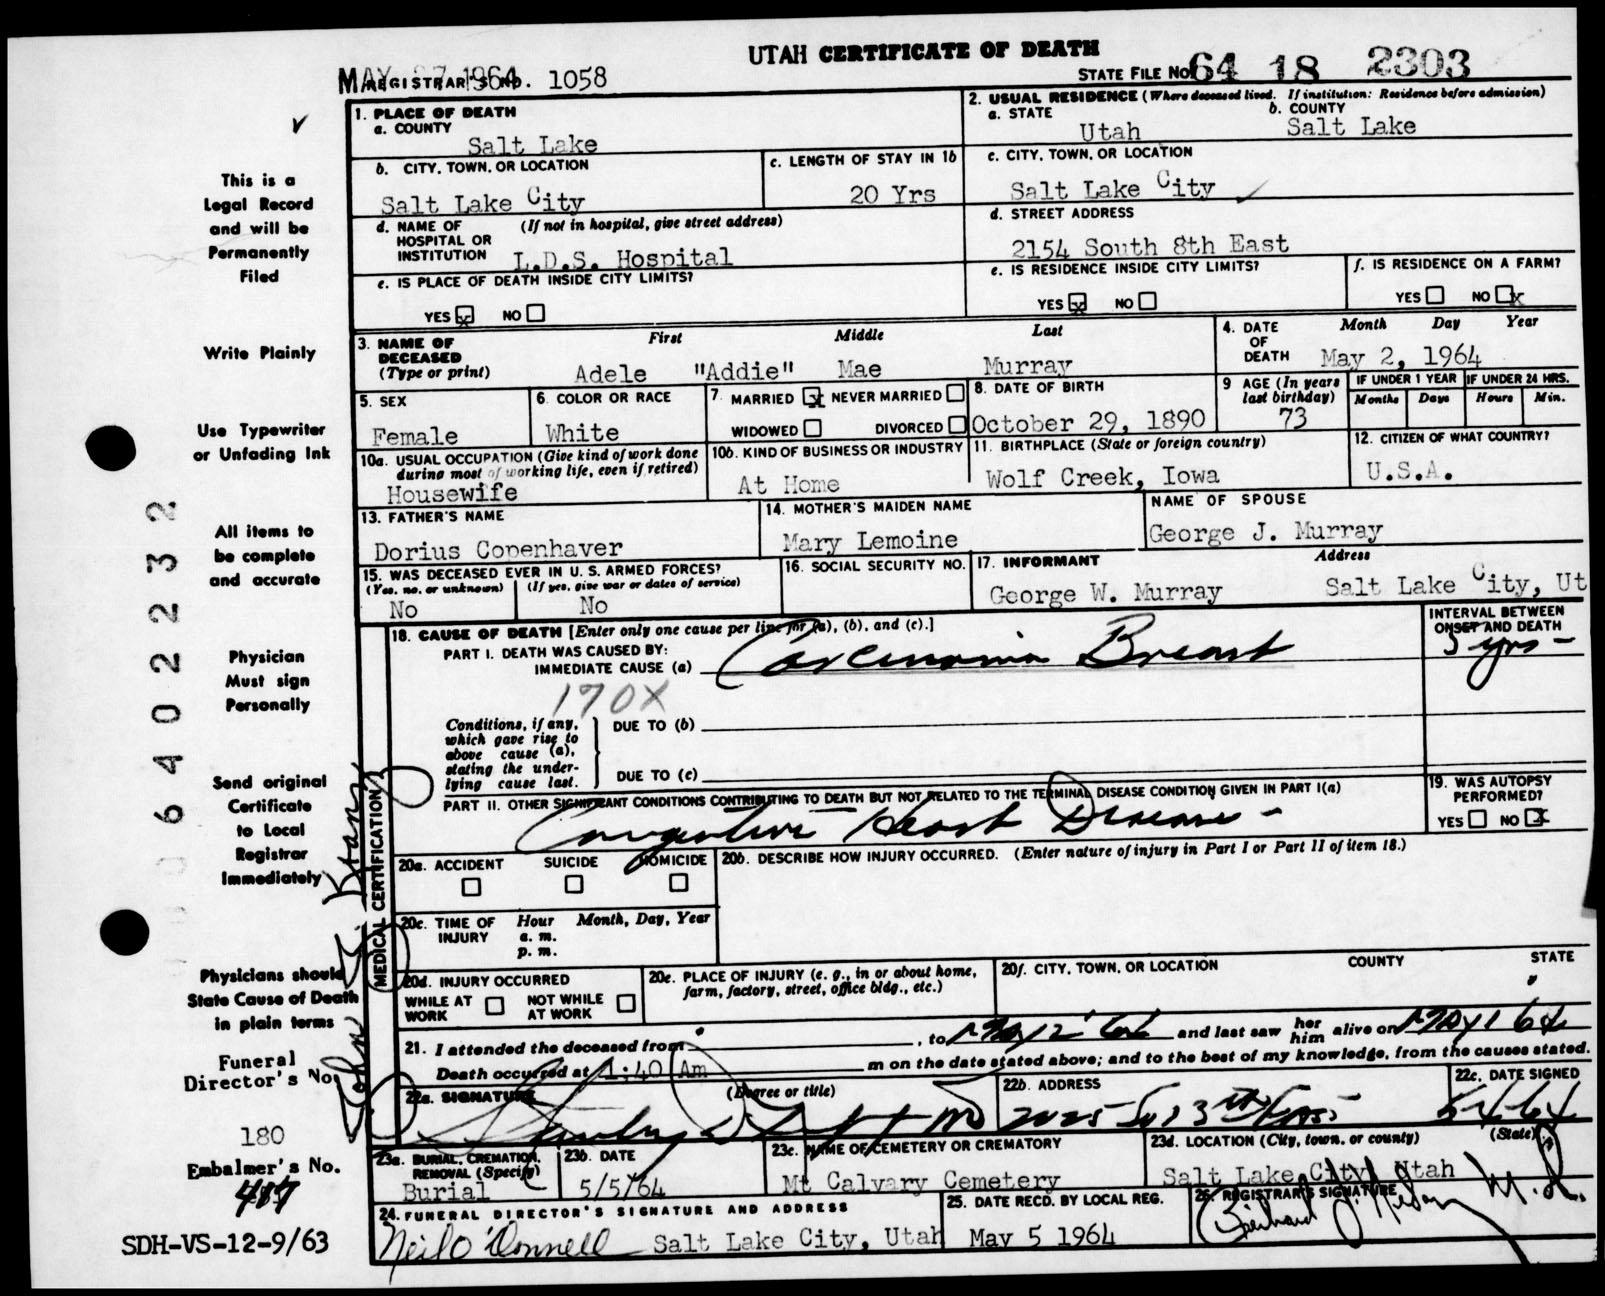 UTAH CERTIFICATE OF DEATH
MAY 27 1964
REGISTRAR'S NO. 1058
STATE FILE NO. 64 18 2303
1. PLACE OF DEATH
a. COUNTY
Salt Lake
2. USUAL RESIDENCE (Where deceased lived. If institution: Residence before admission)
a. STATE
Utah
b. COUNTY
Salt Lake
b. CITY, TOWN, OR LOCATION
Salt Lake City
c. LENGTH OF STAY IN 1b
20 Yrs
c. CITY, TOWN, OR LOCATION
Salt Lake City
d. NAME OF HOSPITAL OR INSTITUTION
(If not in hospital, give street address)
L.D.S. Hospital
d. STREET ADDRESS
2154 South 8th East
e. IS PLACE OF DEATH INSIDE CITY LIMITS?
YES x NO
e. IS RESIDENCE INSIDE CITY LIMITS?
YES x NO
f. IS RESIDENCE ON A FARM?
YES NO x
3. NAME OF DECEASED
(Type or print)
First Middle Last
Adele "Addie" Mae Murray
4. DATE OF DEATH
Month Day Year
May 2, 1964
5. SEX
Female
6. COLOR OR RACE
White
7. MARRIED x NEVER MARRIED
WIDOWED DIVORCED
8. DATE OF BIRTH
October 29, 1890
9 AGE (In years last birthday)
73
IF UNDER 1 YEAR
Months Days
IF UNDER 24 HRS.
Hours Min.
10a. USUAL OCCUPATION (Give kind of work done during most of working life, even if retired)
Housewife
10b. KIND OF BUSINESS OR INDUSTRY
At Home
11. BIRTHPLACE (State or foreign country)
Wolf Creek, Iowa
12. CITIZEN OF WHAT COUNTRY?
U.S.A.
13. FATHER'S NAME
Dorius Copenhaver
14. MOTHER'S MAIDEN NAME
Mary Lemoine
NAME OF SPOUSE
George J. Murray
15. WAS DECEASED EVER IN U. S. ARMED FORCES?
(Yes, no, or unknown) (If yes, give war or dates of service)
No No
16. SOCIAL SECURITY NO.
17. INFORMANT Address
George W. Murray Salt Lake City, Ut
MEDICAL CERTIFICATION
18. CAUSE OF DEATH [Enter only one cause per line for (a), (b), and (c).]
PART I. DEATH WAS CAUSED BY:
IMMEDIATE CAUSE (a) Carcinoma Breast
INTERVAL BETWEEN ONSET AND DEATH
5 yrs -
170X
Conditions, if any, which gave rise to above cause (a), stating the underlying cause last.
DUE TO (b)
DUE TO (c)
PART II. OTHER SIGNIFICANT CONDITIONS CONTRIBUTING TO DEATH BUT NOT RELATED TO THE TERMINAL DISEASE CONDITION GIVEN IN PART I(a)
Congestive Heart Disease -
19. WAS AUTOPSY PERFORMED?
YES NO x
20a. ACCIDENT SUICIDE HOMICIDE
20b. DESCRIBE HOW INJURY OCCURRED. (Enter nature of injury in Part I or Part II of item 18.)
20c. TIME OF INJURY
Hour Month, Day, Year
a. m.
p. m.
20d. INJURY OCCURRED
WHILE AT WORK NOT WHILE AT WORK
20e. PLACE OF INJURY (e. g., in or about home, farm, factory, street, office bldg., etc.)
20f. CITY, TOWN, OR LOCATION COUNTY STATE
21. I attended the deceased from , to May 2 '64 and last saw her him alive on May 1 64
Death occurred at 1:40 Am m on the date stated above; and to the best of my knowledge, from the causes stated.
22a. SIGNATURE (Degree or title)
22b. ADDRESS
22c. DATE SIGNED
23a. BURIAL, CREMATION, REMOVAL (Specify)
Burial
23b. DATE
5/5/64
23c. NAME OF CEMETERY OR CREMATORY
Mt Calvary Cemetery
23d. LOCATION (City, town, or county) (State)
Salt Lake City, Utah
24. FUNERAL DIRECTOR'S SIGNATURE AND ADDRESS
Neil O'Donnell Salt Lake City, Utah
25. DATE RECD. BY LOCAL REG.
May 5 1964
26. REGISTRAR'S SIGNATURE
M.D.
This is a
Legal Record
and will be
Permanently
Filed
Write Plainly
Use Typewriter
or Unfading Ink
All items to
be complete
and accurate
Physician
Must sign
Personally
Send original
Certificate
to Local
Registrar
Immediately
Physicians should
State Cause of Death
in plain terms
Funeral
Director's No.
180
Embalmer's No.
417
SDH-VS-12-9/63
64022232